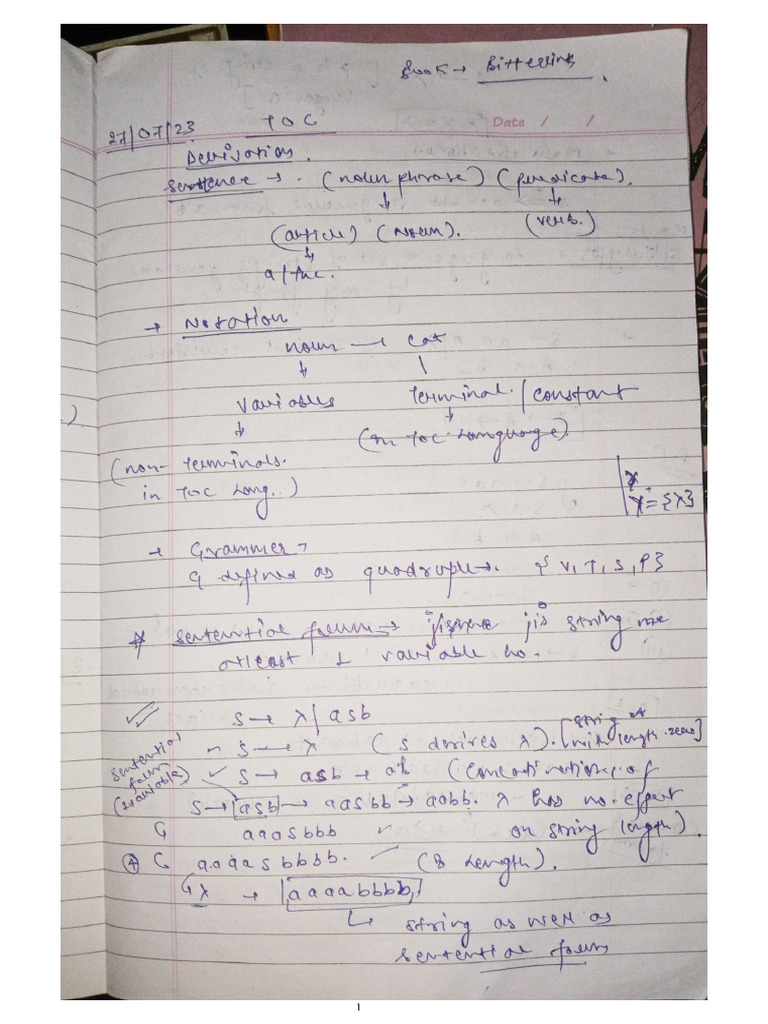 Book → Bittelling
27/07/23 TOC
Date / /
Derivation
Sentence → (noun phrase) (predicate).
(article) (noun). (verb.)
a/the.
→ Notation
noun → cat
variables terminal / constant
(non- terminals. (in TOC language).
in TOC lang..)
λ = {λ}
→ Grammer →
G defined as quadruple →. {V, T, S, P}
* sentential form → string me
atleast 1 variable ho.
S → λ | aSb
S → λ (S derives λ). [string of with length zero]
sentential form (variable)
S → aSb → ab (concatination of
S → aSb → aaSbb → aabb. λ has no effect
aaaSbbb on string length).
④ aaaaSbbbb. (8 length).
λ → aaaabbbb
↳ string as well as
sentential form
1